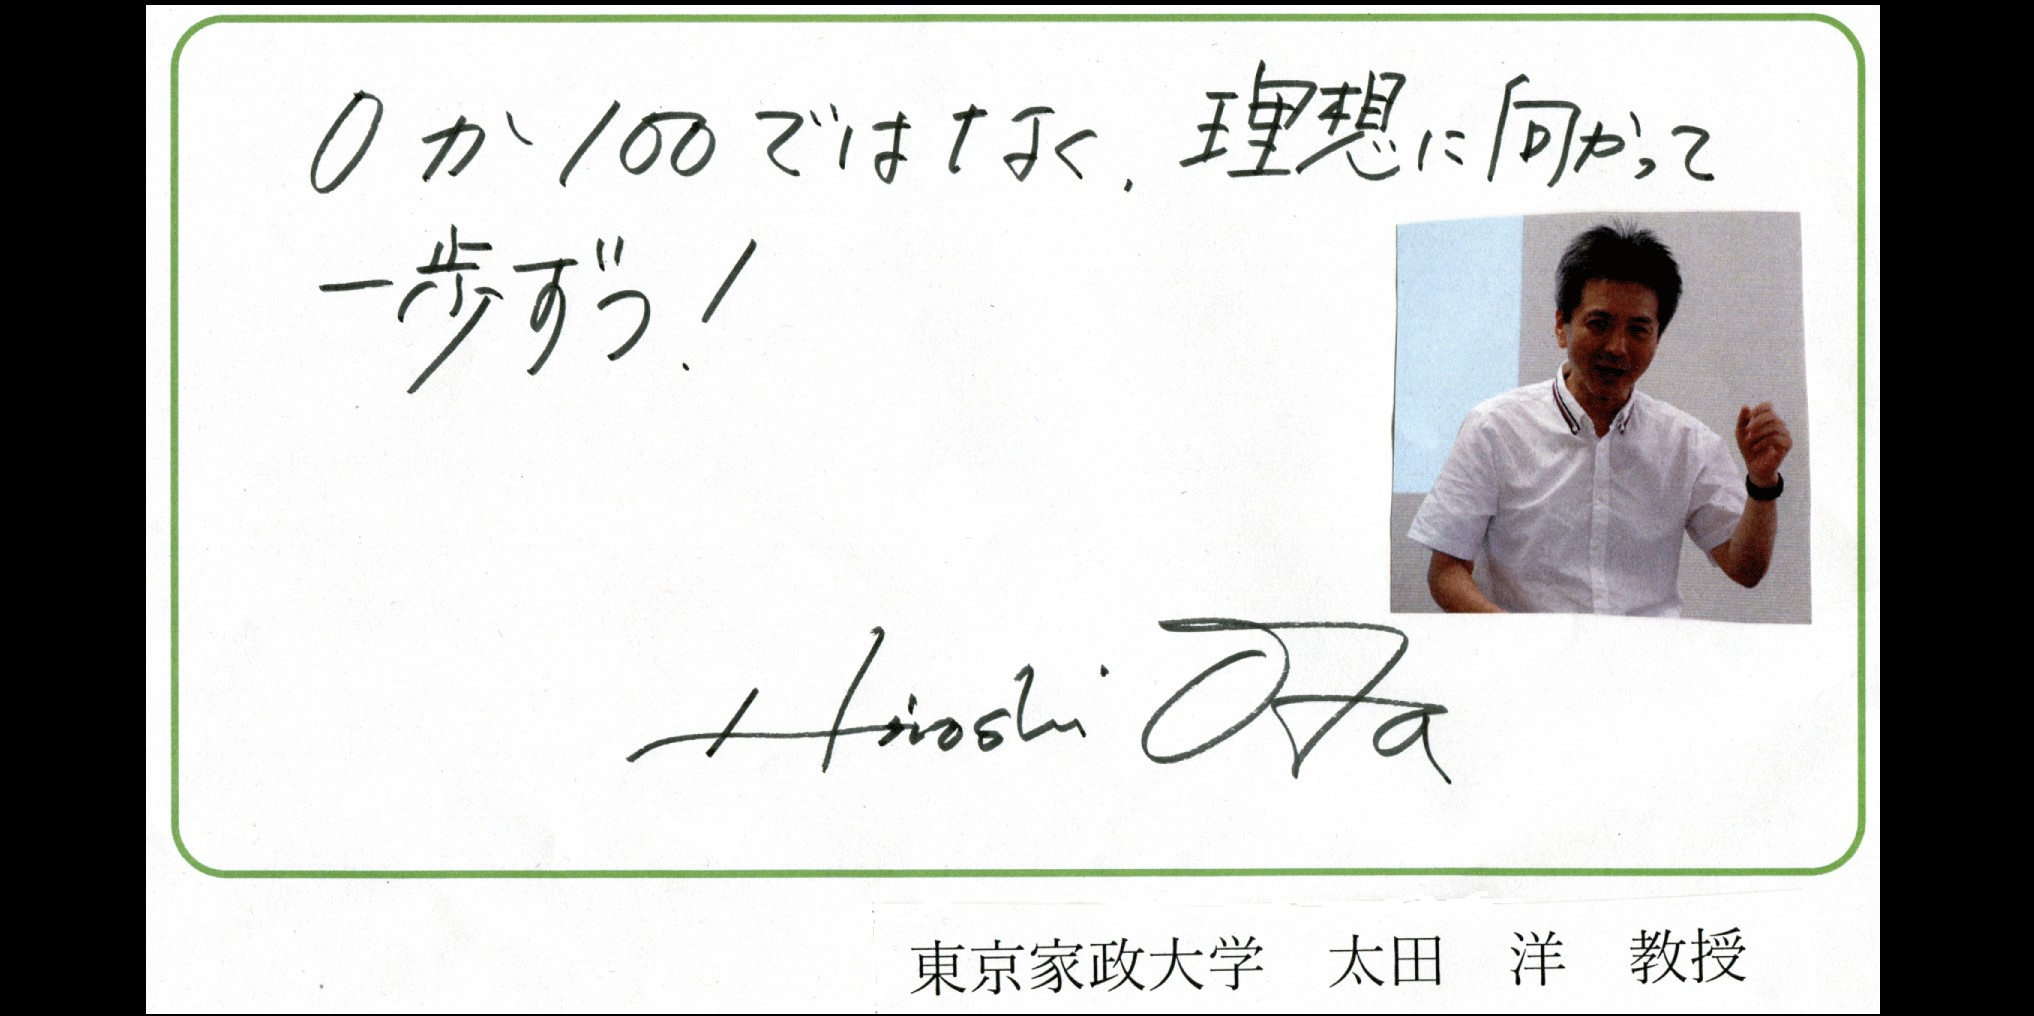 0か100ではなく、理想に向かって
一歩ずつ!
Hiroshi OTa
東京家政大学 太田 洋 教授